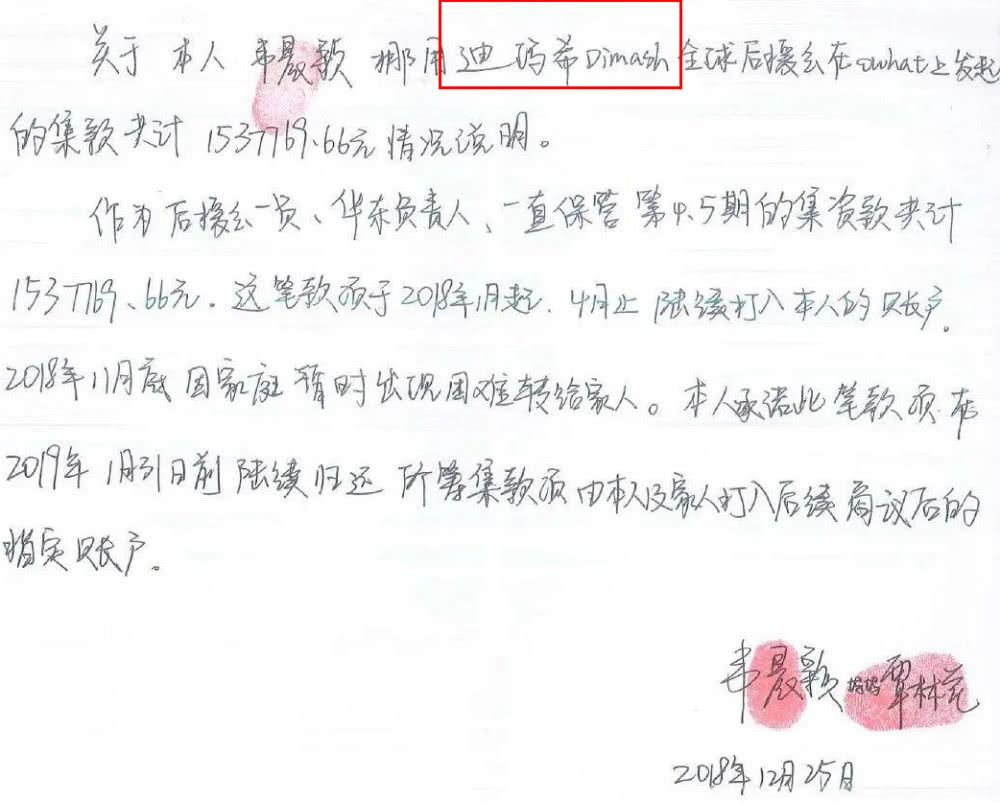 关于本人韦晟颖挪用迪玛希Dimash全球后援会在owhat上发起
的集款共计1537769.66元情况说明。
作为后援会一员、华东负责人、一直保管第4.5期的集资款共计
1537769.66元.这笔款项于2018年1月起.4月止陆续打入本人的账户.
2018年11月底因家庭暂时出现困难转给家人。本人承诺此笔款项在
2019年1月31日前陆续归还所筹集款项由本人及家人打入后续商议后的
指定账户。
韦晟颖 妈妈覃林
2018年12月25日